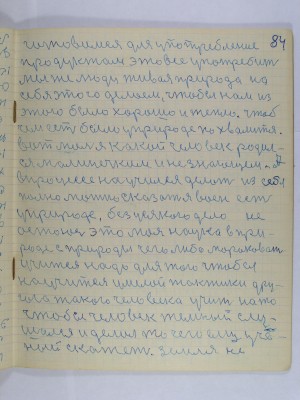 84
готовимся для употребление
продуктам это все употребит
мы же люди живая природа на
себя этого делаем, чтобы нам из
этого было хорошо и тепло. чтоб
у природе хвалится.
вот мол я какой человек родил-
ся маленьким и незнающем. я в
процессе научился делат из себя
можно сказат я вам ест
у природе, без делово не
это моя наука в при-
роде с природы чего либо
учится надо для того чтобы
научится умелой тактики дру-
гого такого человека учит на то
чтобы человек темный слу-
шался и делал то чего ему учё-
ный скажет. земля не